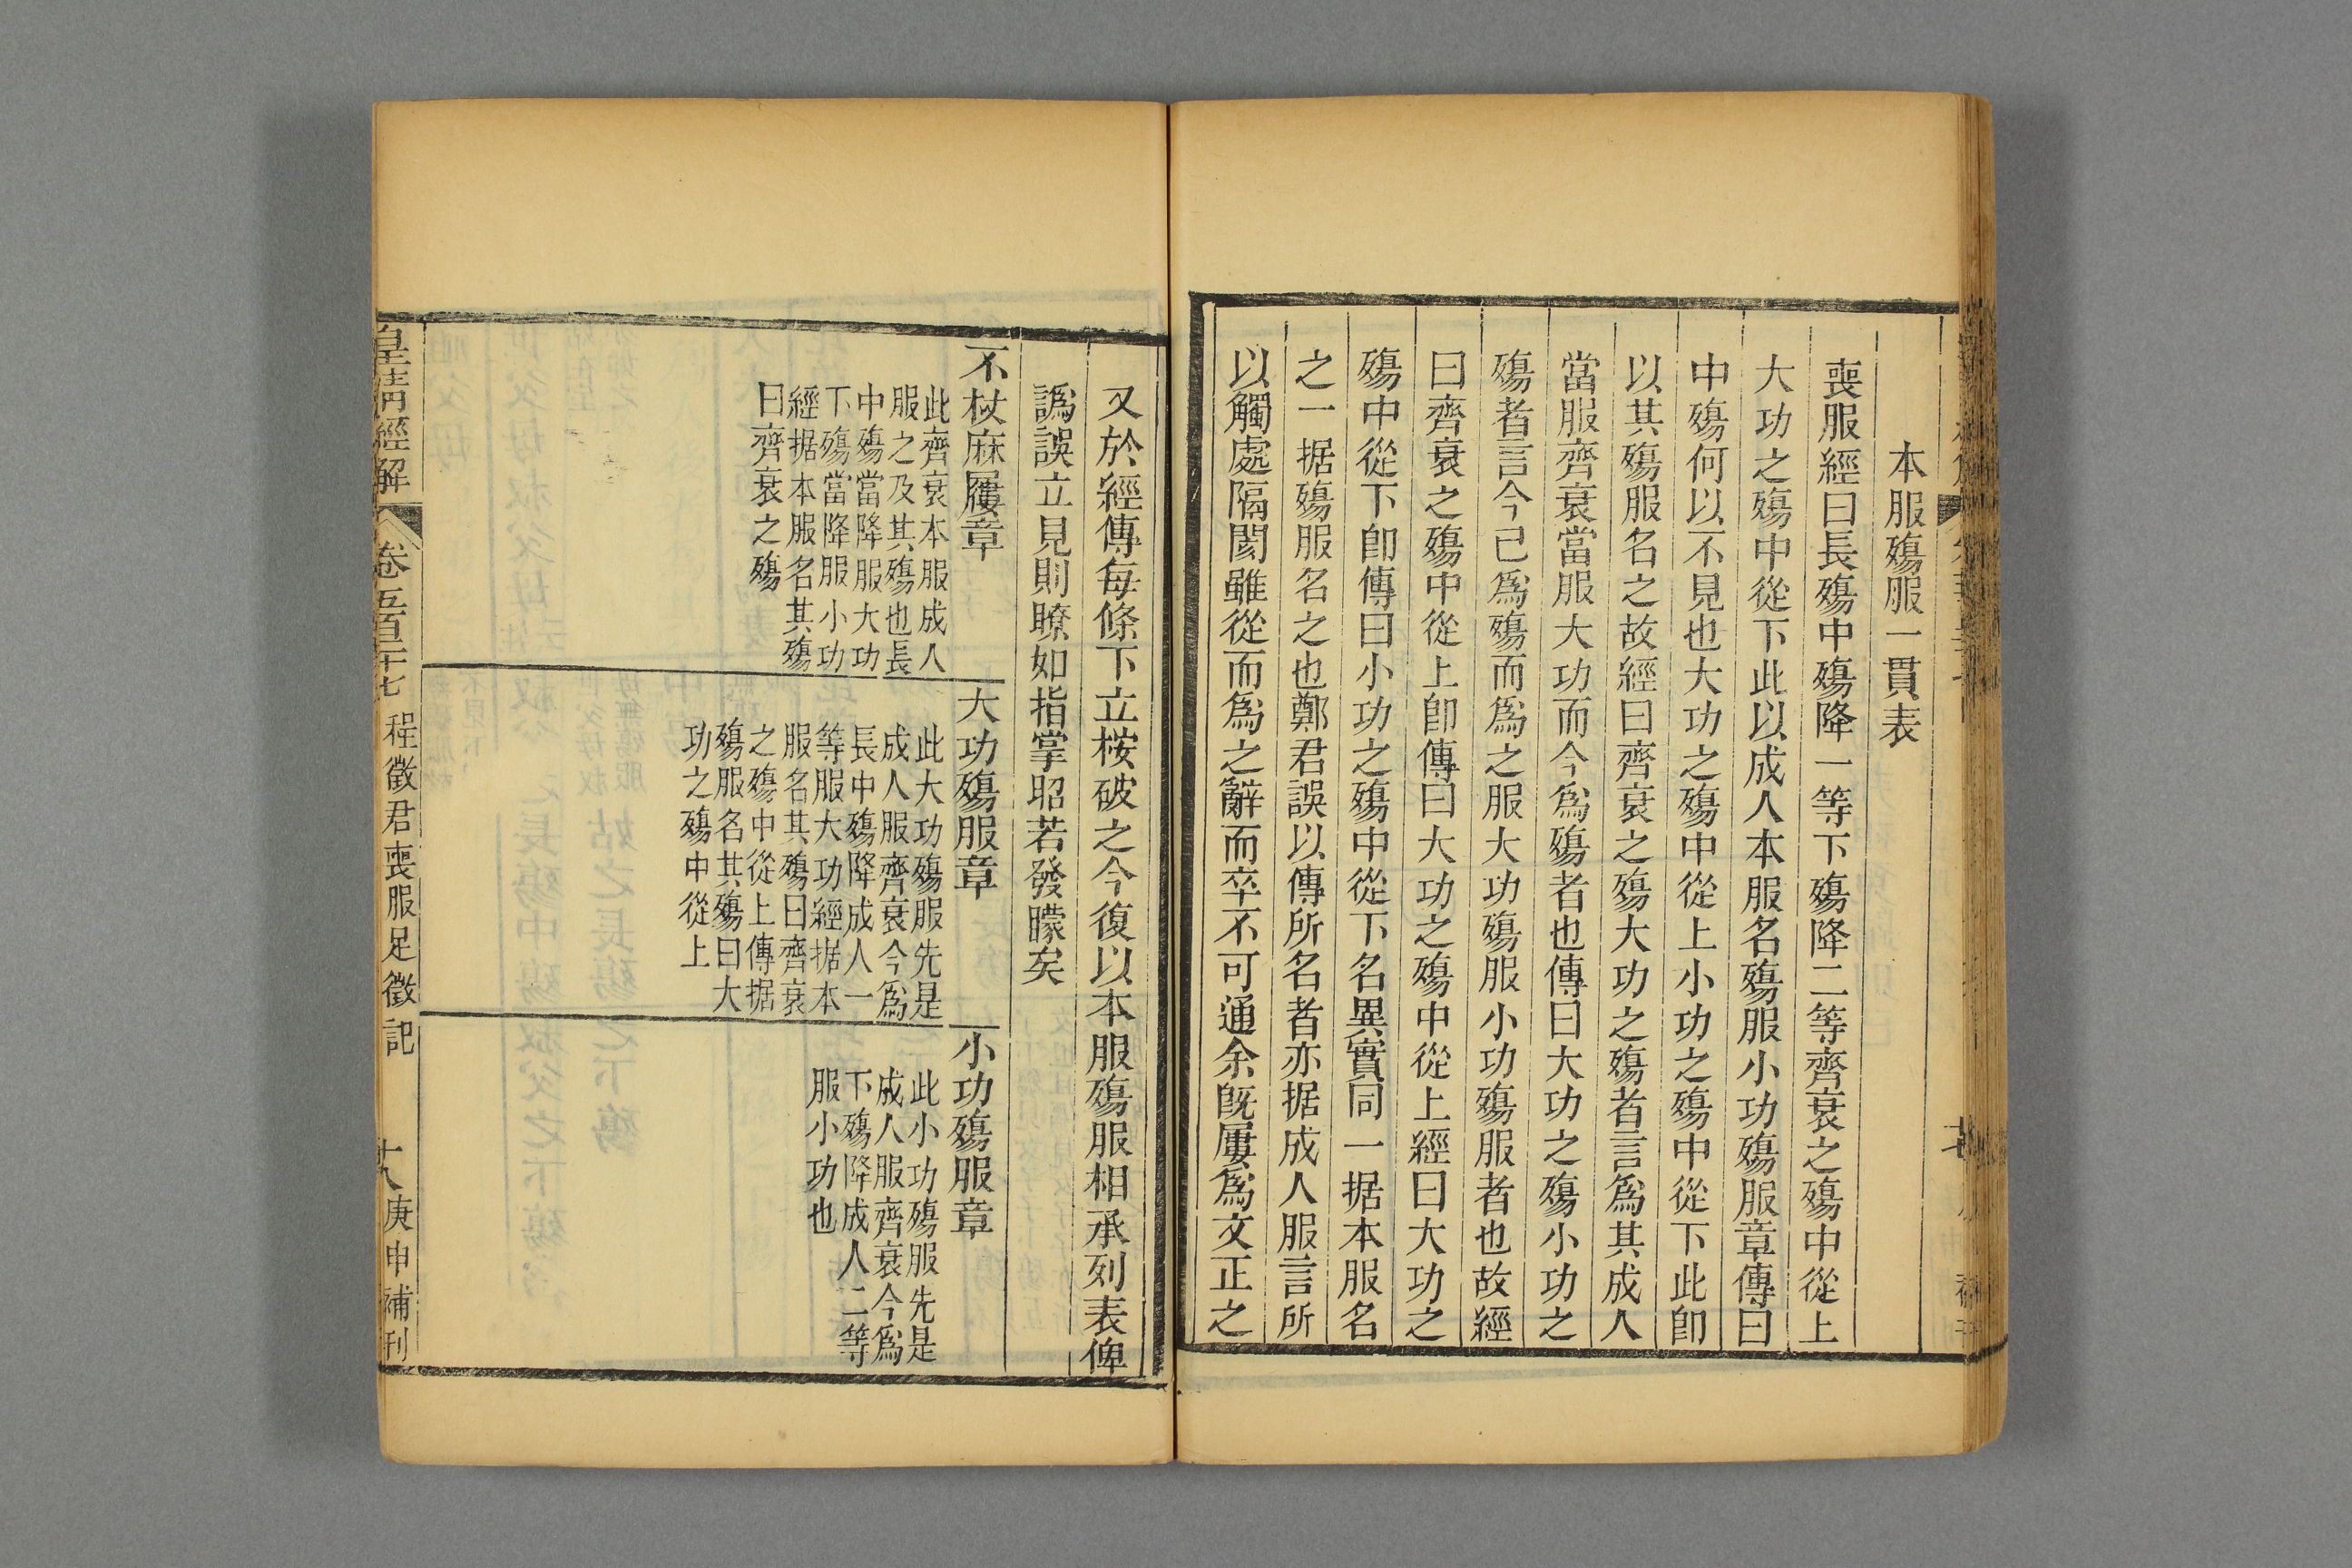 本服殤服一貫表
喪服經曰長殤中殤降一等下殤降二等齊衰之殤中從上
大功之殤中從下此以成人本服名殤服小功殤服章傳曰
中殤何以不見也大功之殤中從上小功之殤中從下此卽
以其殤服名之故經曰齊衰之殤大功之殤者言爲其成人
當服齊衰當服大功而今爲殤者也傳曰大功之殤小功之
殤者言今已爲殤而爲之服大功殤服小功殤服者也故經
曰齊衰之殤中從上卽傳曰大功之殤中從上經曰大功之
殤中從下卽傳曰小功之殤中從下名異實同一据本服名
之一据殤服名之也鄭君誤以傳所名者亦据成人服言所
以觸處隔閡雖從而爲之辭而卒不可通余旣屢爲文正之
又於經傳每條下立桉破之今復以本服殤服相承列表俾
譌誤立見則瞭如指掌昭若發矇矣
不杖麻屨章
此齊衰本服成人
服之及其殤也長
中殤當降服大功
下殤當降服小功
經据本服名其殤
曰齊衰之殤
大功殤服章
此大功殤服先是
成人服齊衰今爲
長中殤降成人一
等服大功經据本
服名其殤曰齊衰
之殤中從上傳据
殤服名其殤曰大
功之殤中從上
小功殤服章
此小功殤服先是
成人服齊衰今爲
下殤降成人二等
服小功也
皇清經解
卷五百二十七
程徵君喪服足徵記
十八
庚申補刊